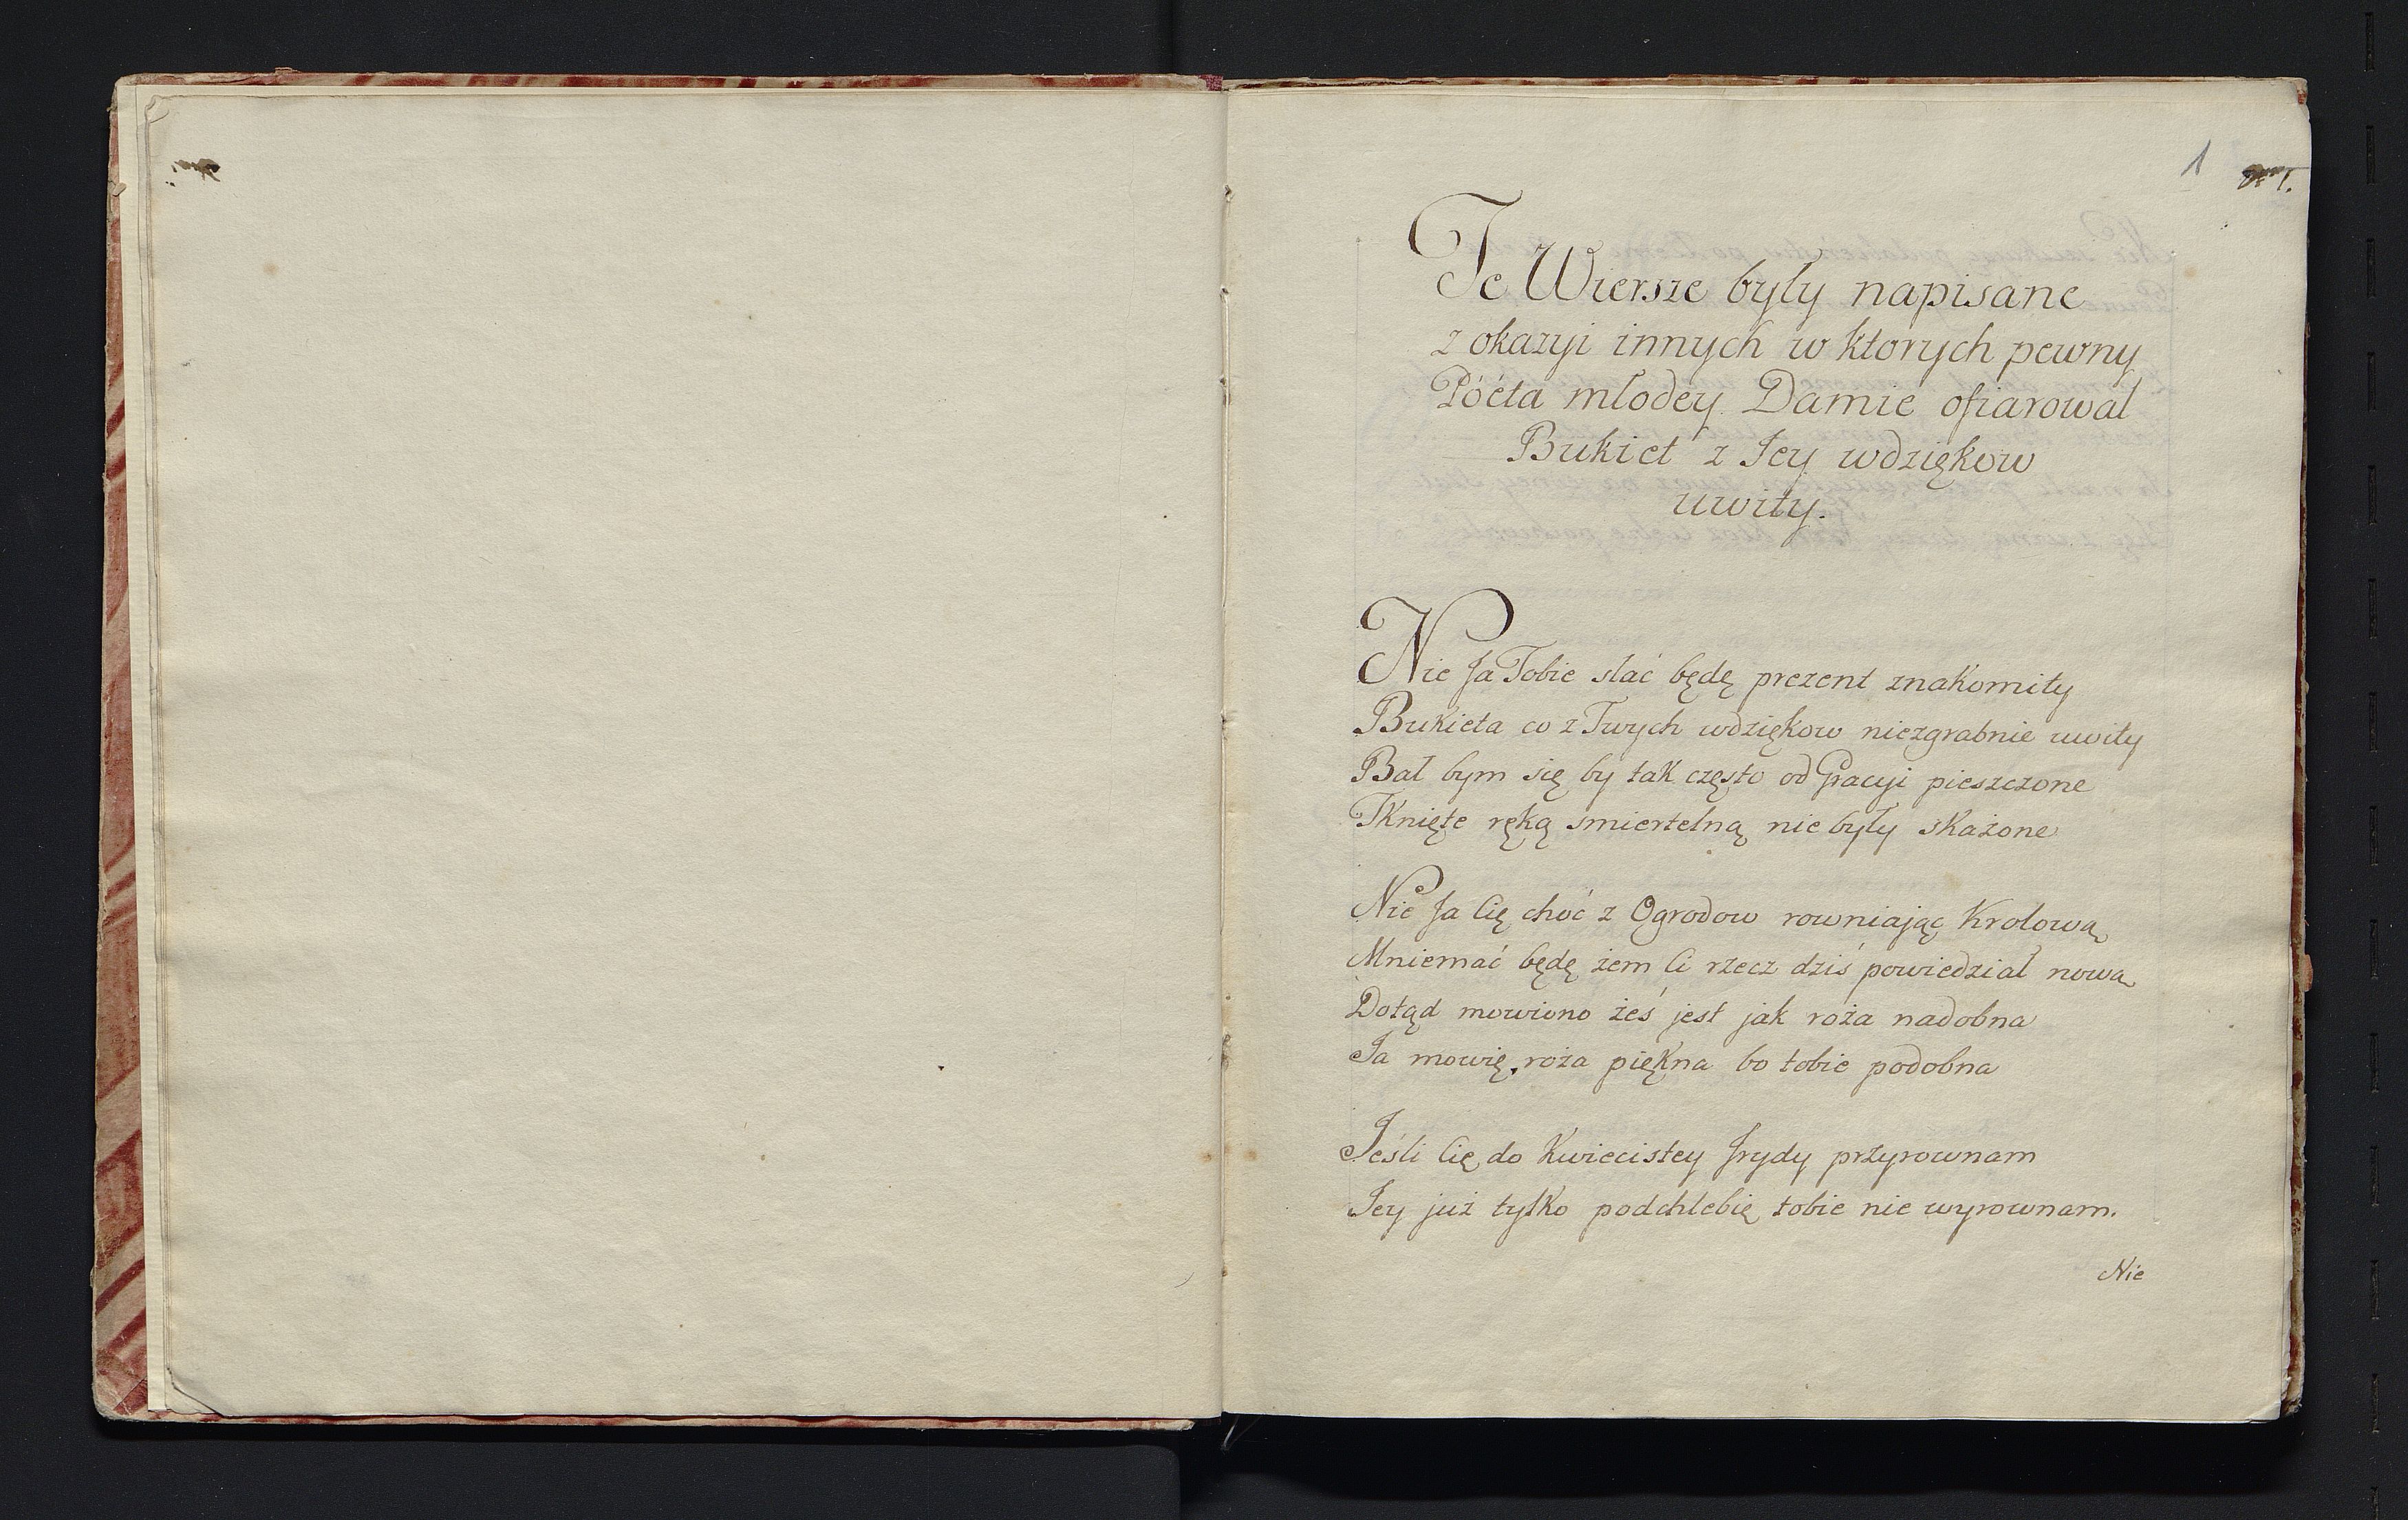 1
Te Wiersze były napisane
z okazyi innych w ktorych pewny
Póéta młodey Damie ofiarował
Bukiet z Jey wdziękow
uwity.
Nie Ja Tobie słać będę prezent znakomity
Bukieta co z Twych wdziękow niezgrabnie uwity
Bał bym się by tak często od Gracyi pieszczone
Tknięte ręką smiertelną nie były skażone
Nie Ja Cię choć z Ogrodow rowniając Krolową
Mniemać będę żem Ci rzecz dziś powiedział nową
Dotąd mowiono żeś jest jak roża nadobna
Ja mowię, roża piękna bo tobie podobna
Jeśli Cię do Kwiecistey Jrydy przyrownam
Jey już tylko podchlebię tobie nie wyrownam.
Nie